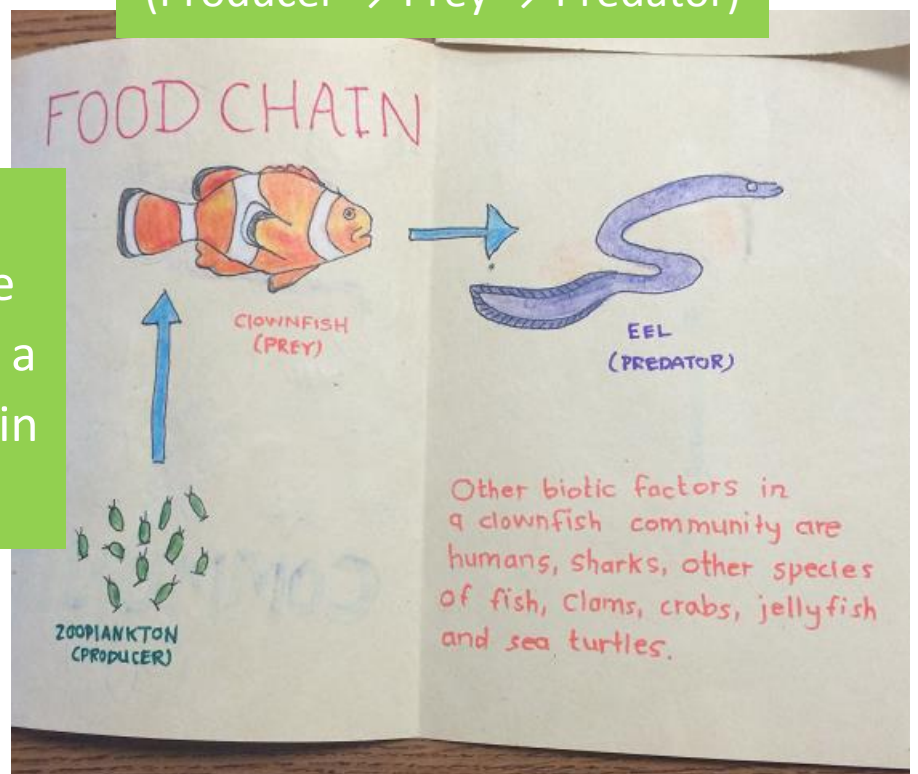 (Producer → Prey → Predator)
FOOD CHAIN
e
a
in
CLOWNFISH
(PREY)
EEL
(PREDATOR)
ZOOPLANKTON
(PRODUCER)
Other biotic factors in
a clownfish community are
humans, sharks, other species
of fish, clams, crabs, jellyfish
and sea turtles.